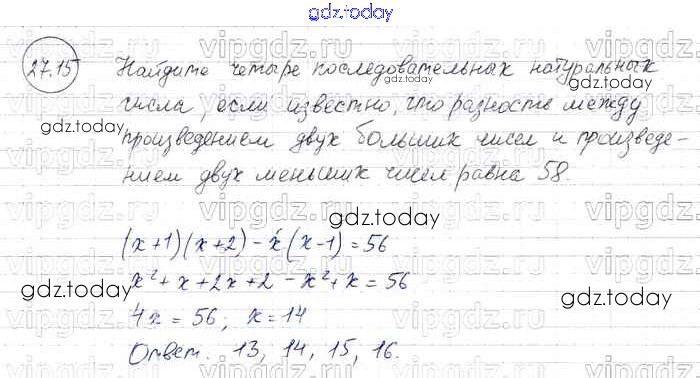 gdz.today
27.15 Найдите четыре последовательных натуральных
числа, если известно, что разность между
произведением двух больших чисел и произведе-
нием двух меньших чисел равна 58.
(x+1)(x+2)-x(x-1)=56
x²+x+2x+2-x²+x=56
4x=56; x=14
Ответ. 13, 14, 15, 16.
vipgdz.ru
gdz.today